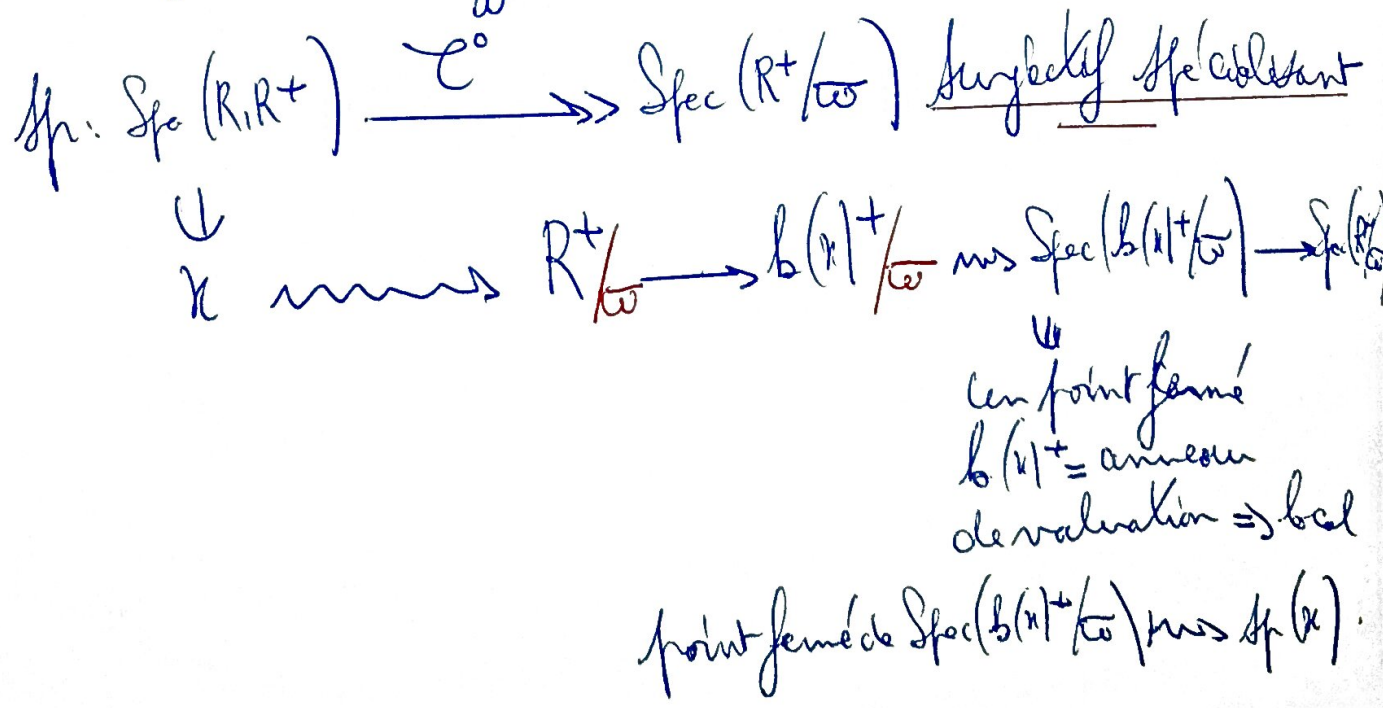 ϖ
sp: Spa (R,R⁺) —𝒞⁰→≫ Spec (R⁺/ϖ) surjectif spécialisant
x ⇝ R⁺/ϖ ⟶ k(x)⁺/ϖ ⇝ Spec(k(x)⁺/ϖ) ⟶ Spec(R⁺/ϖ)
un point fermé
k(x)⁺ = anneau
de valuation ⇒ local
point fermé de Spec(k(x)⁺/ϖ) ⇝ sp(x).